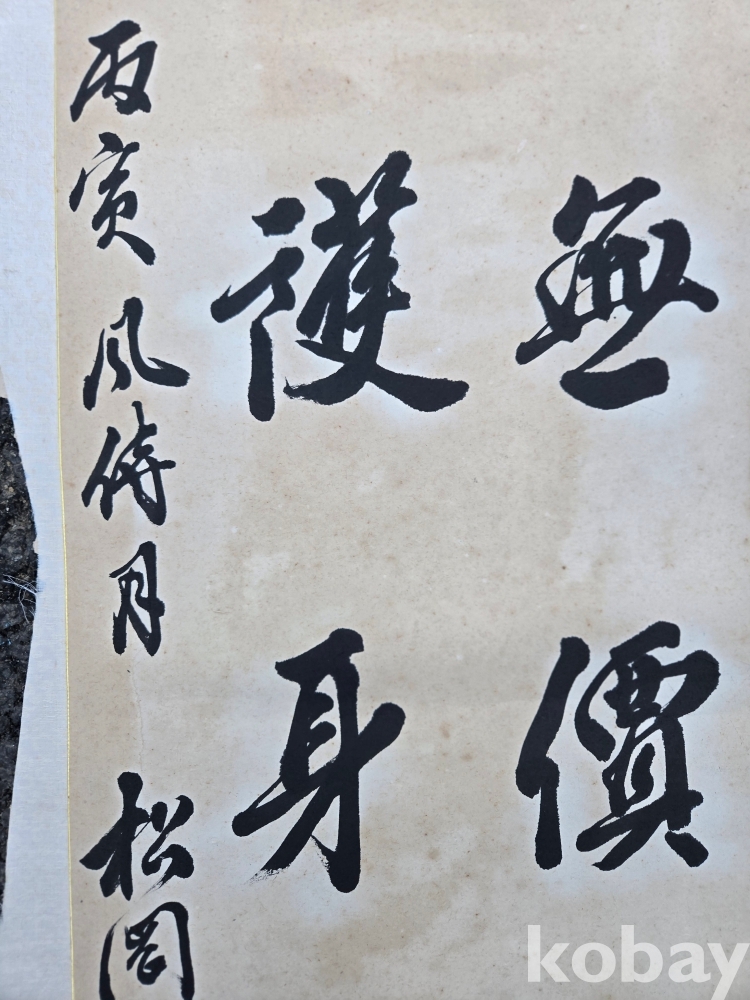 無價
護身
丙寅風待月 松岡
kobay